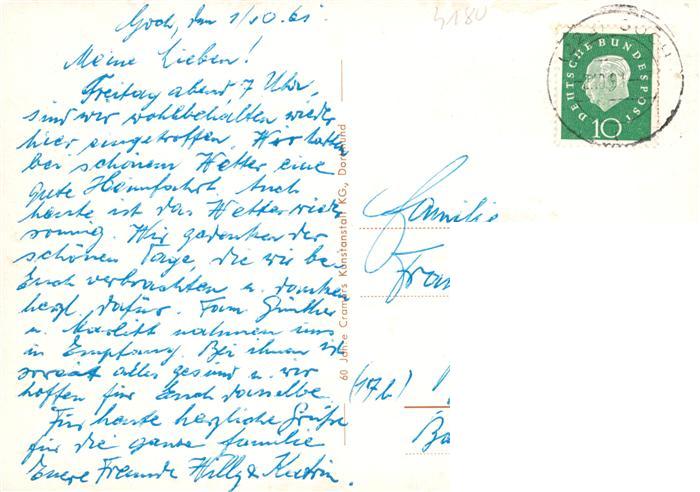 Goch, den 1/10.61.
Meine Lieben!
Freitag abend, 7 Uhr,
sind wir wohlbehalten wieder
hier eingetroffen. Wir hatten
bei schönem Wetter eine
gute Heimfahrt. Auch
heute ist das Wetter wieder
sonnig. Wir gedenken der
schönen Tage, die wir bei
Euch verbrachten u. danken
herzl. dafür. Fam. Günther
u. Marlitt nahmen uns
in Empfang. Bei ihnen ist
soweit alles gesund u. wir
hoffen für Euch dasselbe.
Für heute herzliche Grüße
für die ganze Familie
Euere Freunde Willy & Katrin.
60 Jahre Cramers Kunstanstalt KG., Dortmund
4180
DEUTSCHE BUNDESPOST
10
GOCH
Familie
Fran
(17b)
Ba